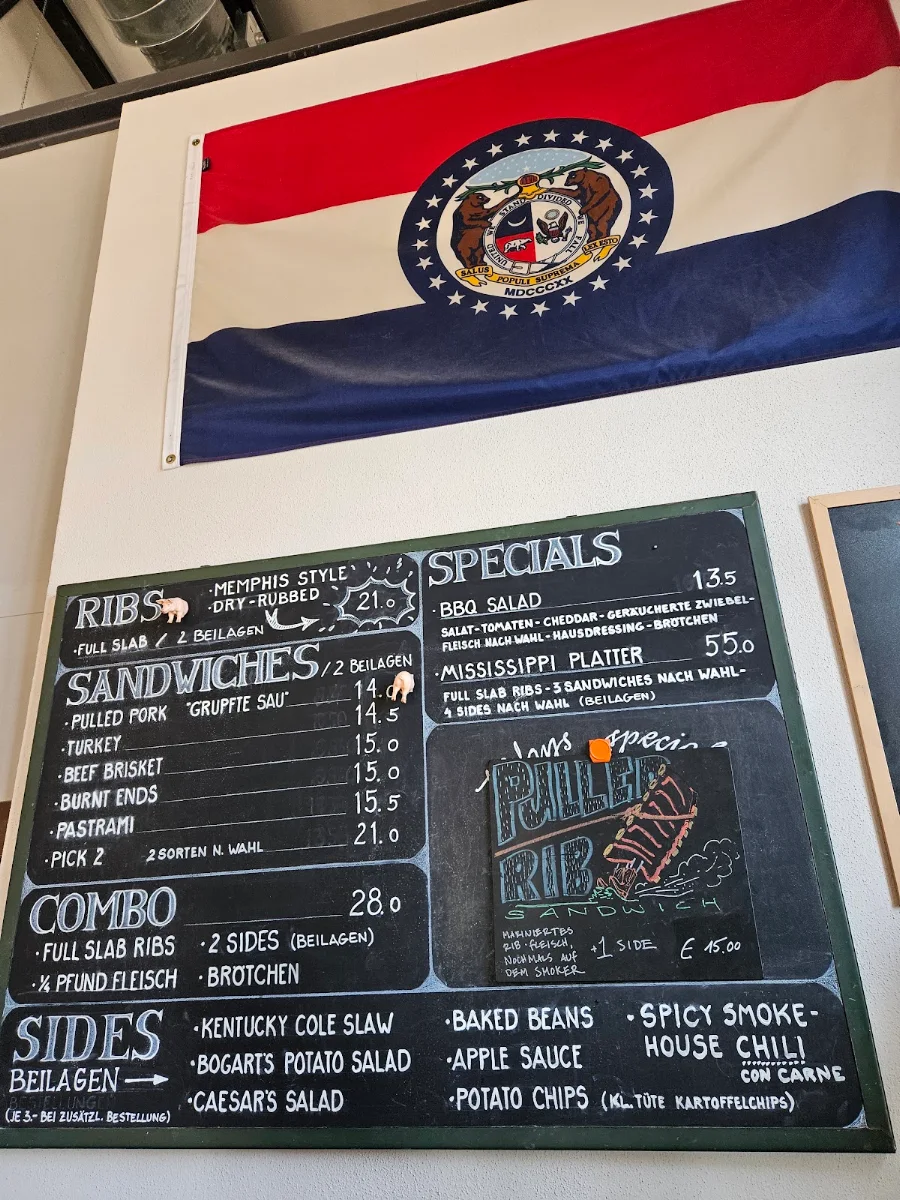 UNITED WE STAND DIVIDED WE FALL
SALUS POPULI SUPREMA LEX ESTO
MDCCCXX
RIBS
·MEMPHIS STYLE
·DRY-RUBBED
21.0
·FULL SLAB / 2 BEILAGEN
SANDWICHES / 2 BEILAGEN
·PULLED PORK "GRUPFTE SAU" 14.
·TURKEY 14.5
·BEEF BRISKET 15.0
·BURNT ENDS 15.0
·PASTRAMI 15.5
·PICK 2 2 SORTEN N. WAHL 21.0
COMBO 28.0
·FULL SLAB RIBS ·2 SIDES (BEILAGEN)
·¼ PFUND FLEISCH ·BRÖTCHEN
SPECIALS
·BBQ SALAD 13.5
SALAT-TOMATEN-CHEDDAR-GERÄUCHERTE ZWIEBEL-
FLEISCH NACH WAHL-HAUSDRESSING-BRÖTCHEN
·MISSISSIPPI PLATTER 55.0
FULL SLAB RIBS-3 SANDWICHES NACH WAHL-
4 SIDES NACH WAHL (BEILAGEN)
special
PULLED
RIB
SANDWICH
MARINIERTES
RIB-FLEISCH,
NOCHMALS AUF
DEM SMOKER
+1 SIDE
€ 15.00
SIDES
BEILAGEN
(JE 3.- BEI ZUSÄTZL. BESTELLUNG)
·KENTUCKY COLE SLAW
·BOGART'S POTATO SALAD
·CAESAR'S SALAD
·BAKED BEANS
·APPLE SAUCE
·POTATO CHIPS (KL. TÜTE KARTOFFELCHIPS)
·SPICY SMOKE-
HOUSE CHILI
CON CARNE